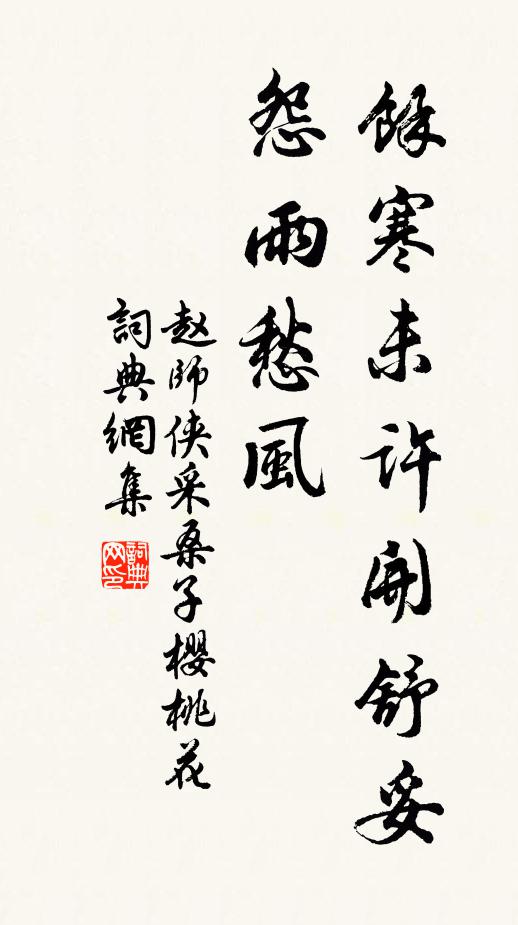 餘寒未許開舒妥
怨雨愁風
赵師俠采桑子櫻桃花
詞典網集
詞典网印